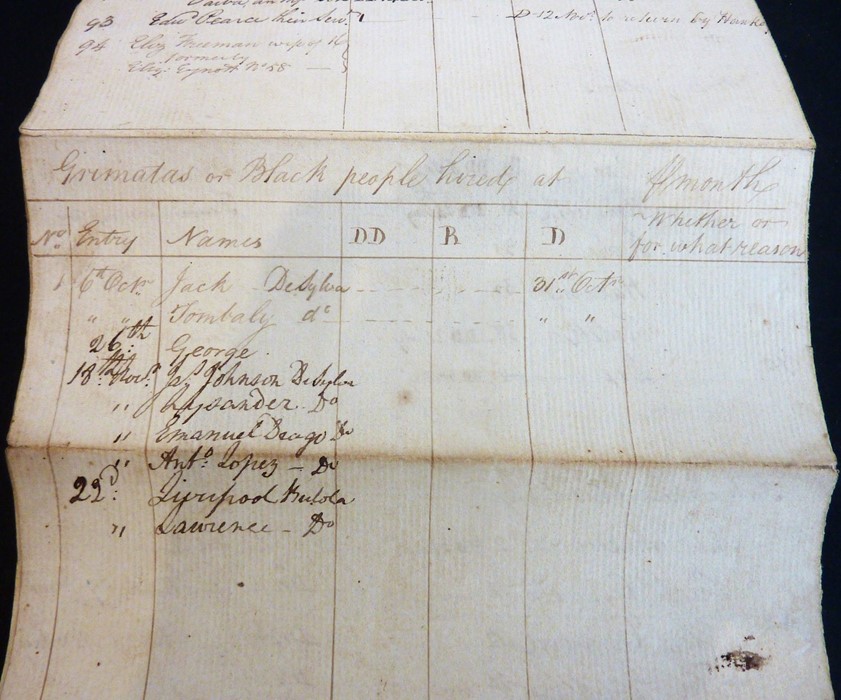 93 Edwd Pearce his Servt D 12 Novr to return by Hanke
94 Eliz Freeman wife of 16
formerly
Eliz: No 58
Grimatas or Black people hired at ⅌ month
No Entry Names DD R D Whether or for what reason
1 6th Octr Jack DeSylva 31st Octr
" " Tombaly do " "
26th: George
18th Novr: Jas Johnson DeSylva
" Lysander Do
" Emanuel Deago Do
" Anto: Lopez - Do
22d: Liverpool
" Lawrence - Do